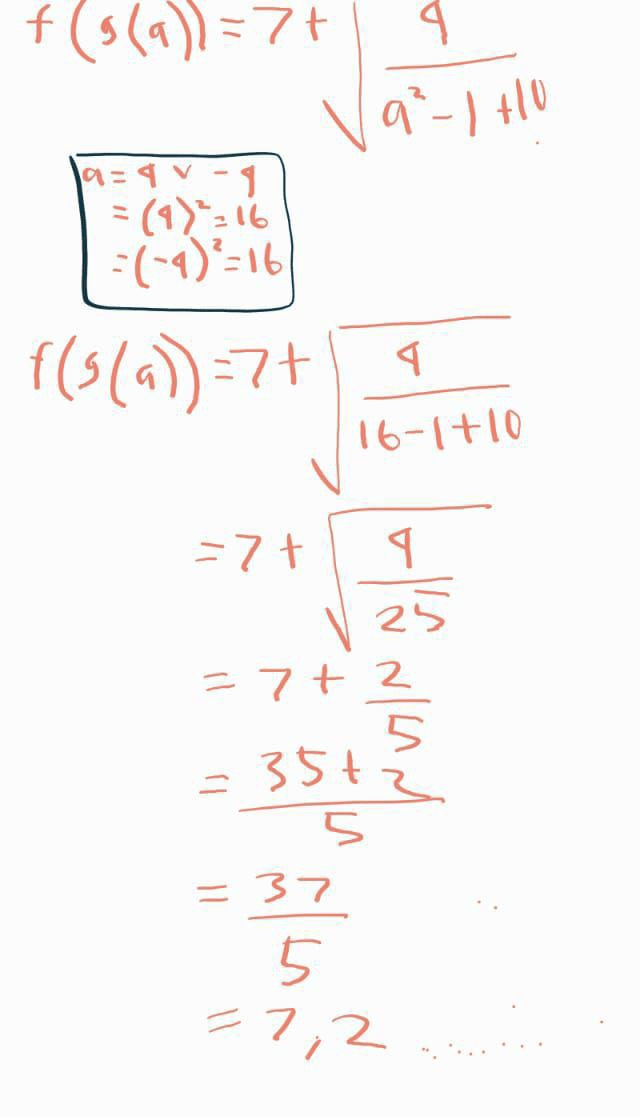 f(g(a)) = 7 + √(4/(a² - 1 + 10))
a = 4 v -4
= (4)² = 16
= (-4)² = 16
f(g(a)) = 7 + √(4/(16 - 1 + 10))
= 7 + √(4/25)
= 7 + 2/5
= (35 + 2)/5
= 37/5
= 7,2 ........